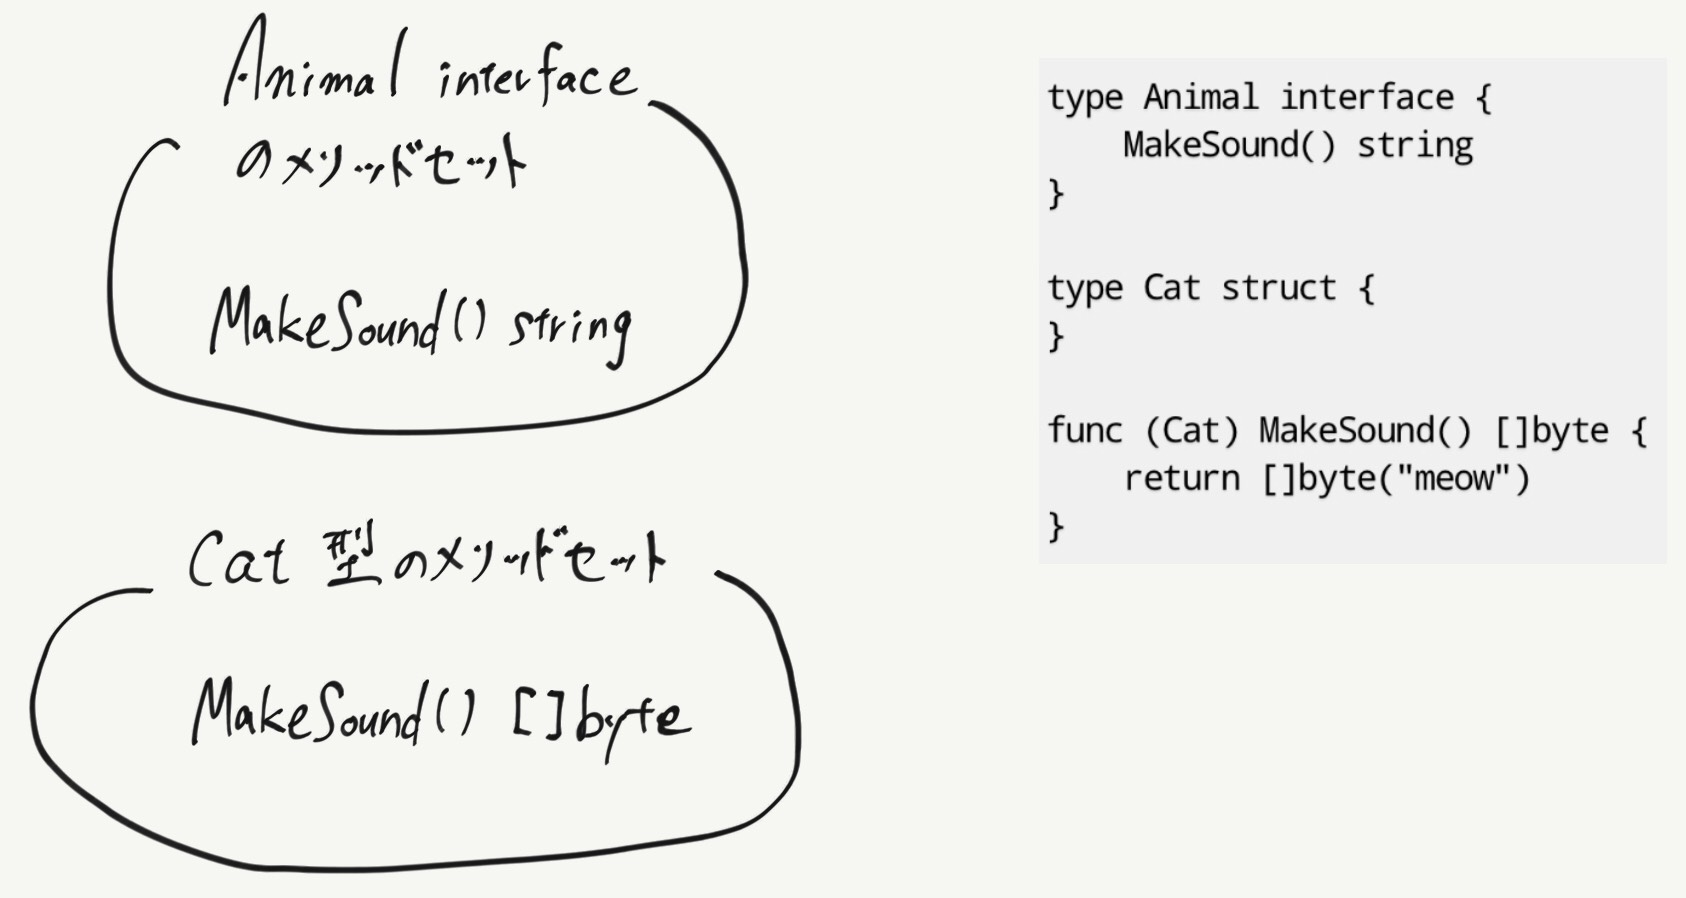 Animal interface
のメソッドセット
MakeSound() string
Cat 型のメソッドセット
MakeSound() []byte
type Animal interface {
    MakeSound() string
}
type Cat struct {
}
func (Cat) MakeSound() []byte {
    return []byte("meow")
}